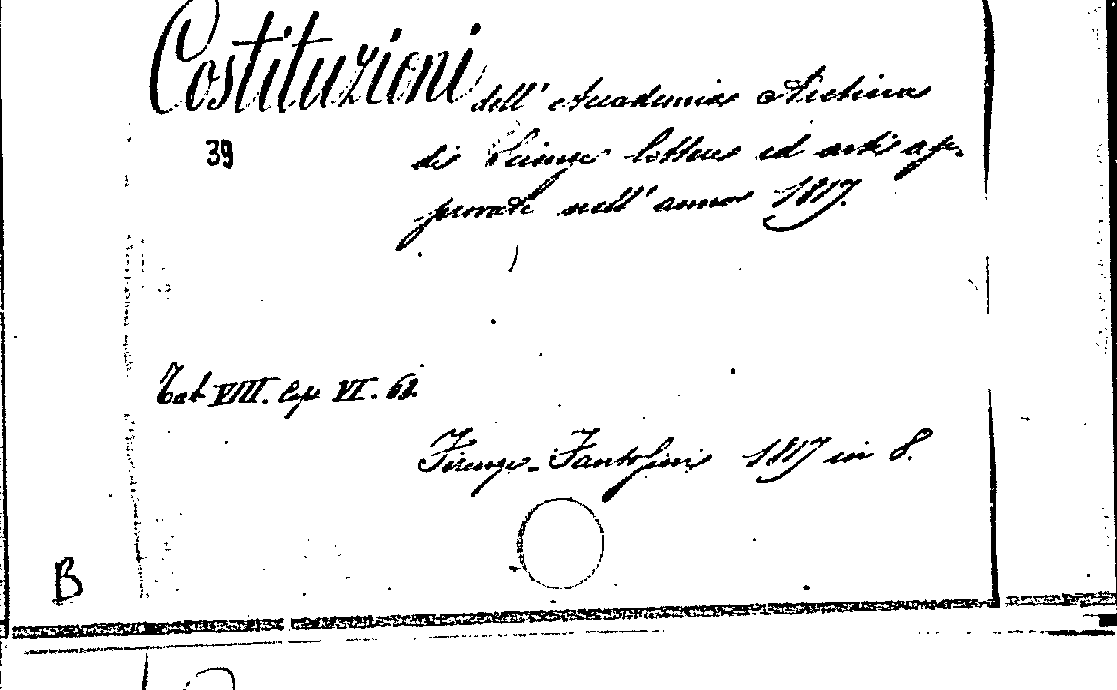 Costituzioni dell' Accademia Aretina
39
di Scienze lettere ed arti ap-
provate nell' anno 1817.
Tab VIII. Cap VI. 62.
Firenze - Fantosini 1817 in 8.
B